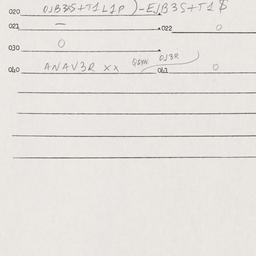 020 OJB3S+T1L1P)-EJB3S+T1$
021 — 022 0
030 0
040 ANAV3R XX GSYN OJ3R 041 0